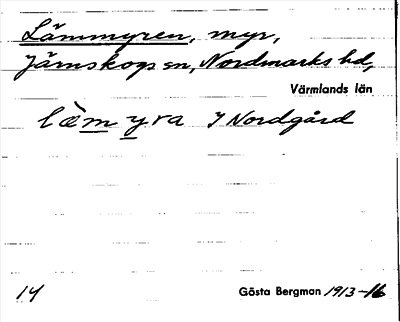 Lämmyren, myr,
Järnskogs sn, Nordmarks hd,
Värmlands län
lèm yra I Nordgård
14 Gösta Bergman 1913-16